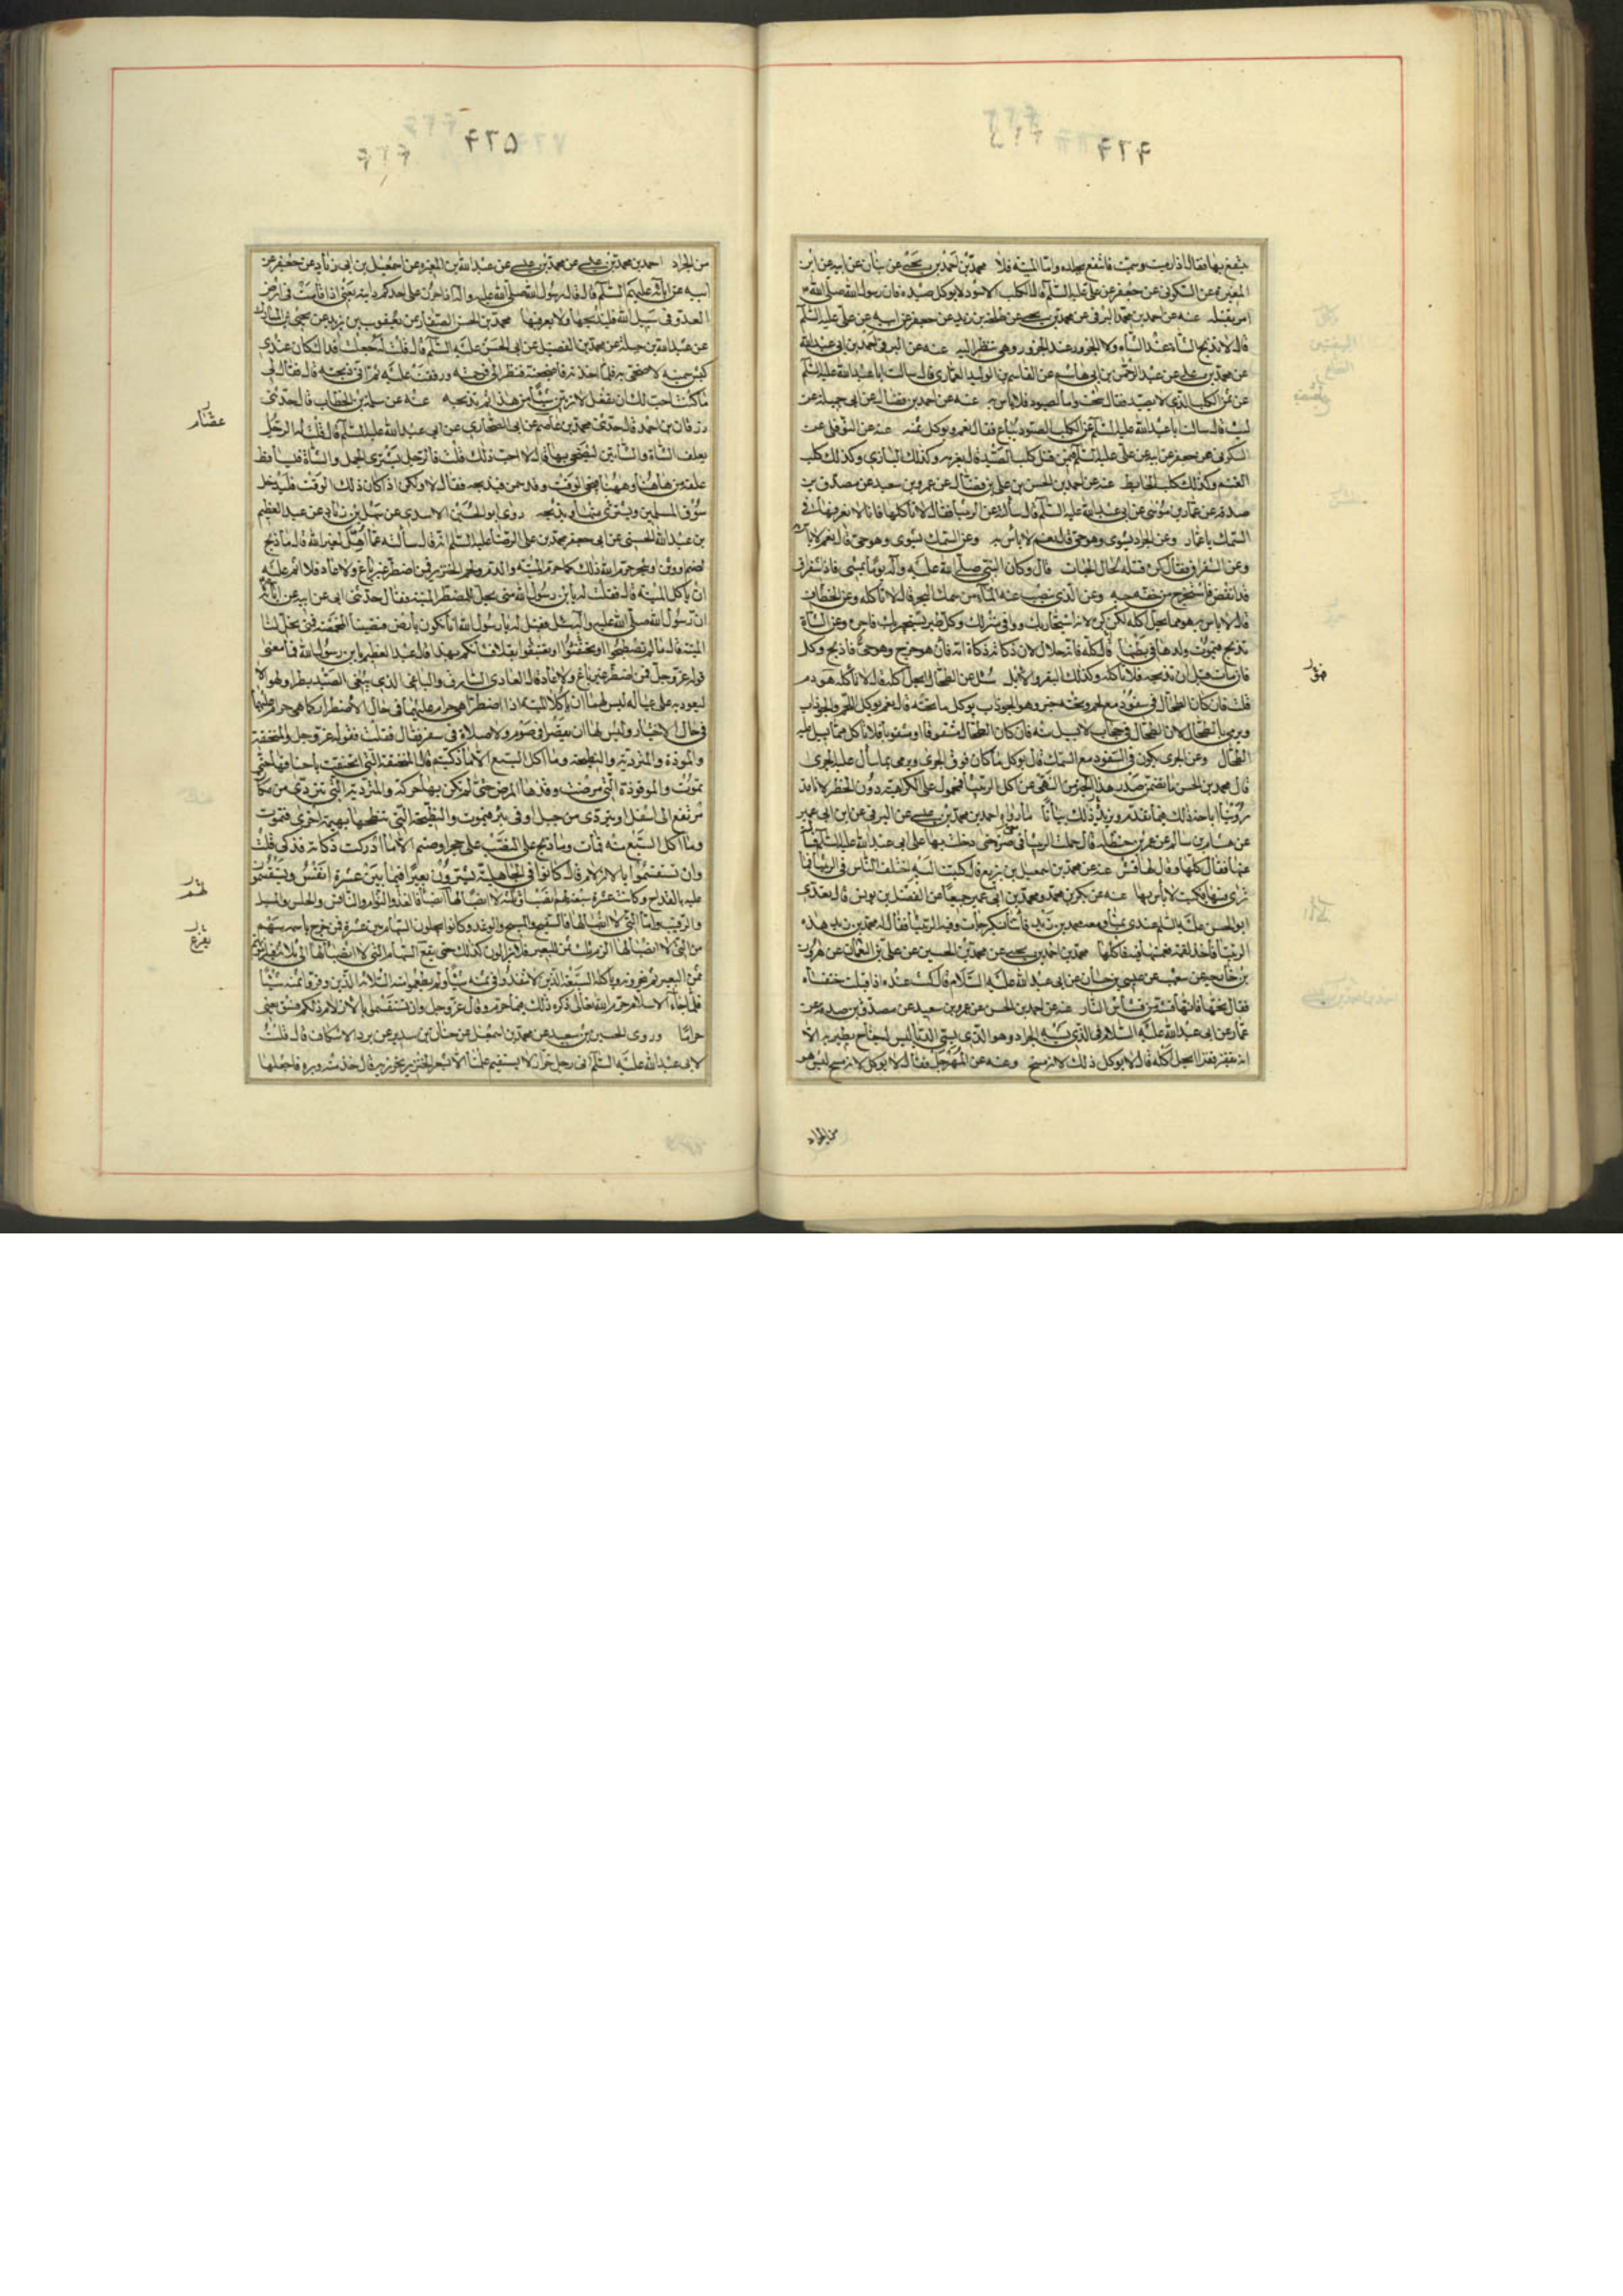 ينتفع بها فقال اذا رميت وسميت فانتفع بجلده واما الميتة فلا محمد بن احمد بن يحيى عن بنان عن ابيه عن ابن
المغيرة عن السكونى عن جعفر عن على عليه السلم قال الكلب الاسود لا يوكل صيده فان رسول الله صلى الله
امر بقتله عنه عن احمد بن محمد البرقى عن محمد بن يحيى عن طلحة بن زيد عن جعفر عن ابيه عن على عليه السلم
قال لا تذبح الشاة عند الشاة ولا الجزور عند الجزور وهى تنظر اليه عنه عن البرقى احمد بن ابى عبد الله
عن محمد بن على عن عبد الرحمن بن ابى هاشم عن القاسم بن الوليد العمارى قال سالت ابا عبد الله عليه السلم
عن ثمن الكلب الذى لا يصيد فقال سحت واما الصيود فلا باس به عنه عن احمد بن فضال عن ابى جميلة عن
ليث قال سالت ابا عبد الله عليه السلم عن الكلب الصيود يباع فقال نعم ويوكل ثمنه عنه عن النوفلى عن
السكونى عن جعفر عن ابيه عن على عليه السلم فيمن قتل كلب الصيد قال يغرمه وكذلك البازى وكذلك كلب
الغنم وكذلك كلب الحايط عنه عن احمد بن الحسن بن على بن فضال عن عمرو بن سعيد عن مصدق بن
صدقة عن عمار بن موسى عن ابى عبد الله عليه السلم قال سألته عن الربيثا فقال لا تأكلها فانا لا نعرفها فى
السمك يا عمار وعن الجراد يشوى وهو حى قال نعم لا باس به وعن السمك يشوى وهو حى قال نعم لا بأس
تذبح فيموت ولدها فى بطنها قال كله فانه حلال لان ذكاته ذكاة امه فان هو خرج وهو حى فاذبح وكل
فان مات قبل ان تذبحه فلا تأكله وكذلك البقر والابل سئل عن الطحال ايحل اكله قال لا تأكله هو دم
قلت فان كان الطحال فى سفود مع لحم وتحته خبز وهو الجوذاب يوكل ما تحته قال نعم يوكل اللحم والجوذاب
ويرمى بالطحال لان الطحال فى حجاب لا يسيل منه فان كان الطحال مشقوقا او مثقوبا فلا تأكل مما يسيل عليه
الطحال وعن الجرى يكون فى السفود مع السمك قال يوكل ما كان فوق الجرى ويرمى بما سال عليه الجرى
قال محمد بن الحسن ما تضمن صدر هذا الخبر من النهى عن اكل الربيثا فمحمول على الكراهية دون الحظر لانا قد
عن هشام بن سالم عن عمر بن حنظلة قال حملت الربيثا فى صرة حتى دخلت بها على ابى عبد الله عليه السلم فسألته
عنها فقال كلها وقال لها قشر عنه عن محمد بن اسمعيل بن بزيع قال كتبت اليه اختلف الناس فى الربيثا فما
ابو الحسن عليه السلم عندى بمنى
بن خارجة عن شعيب عن عيسى بن حسان عن ابى عبد الله عليه السلام قال كنت عنده اذ اقبلت خنفساة
فقال نحها فانها قشة من قشاش النار عنه عن احمد بن الحسن عن عمرو بن سعيد عن مصدق بن صدقة عن
عمار عن ابى عبد الله عليه السلام فى الذى يشبه الجراد وهو الذى يسمى الدبا ليس له جناح يطير به الا
انه يقفز قفزا ايحل اكله قال لا يوكل ذلك لانه مسخ وعنه عن المهرجل فقال لا يوكل لانه مسخ ليس هو
من الجراد
من الجراد احمد بن محمد بن عيسى عن محمد بن عيسى عن عبد الله بن المغيرة عن اسمعيل بن ابى زياد عن جعفر عن
ابيه عن ابائه عليهم السلم قال قال رسول الله صلى الله عليه واله اذا حرن على احدكم دابته يعنى اذا قامت فى ارض
العدو فى سبيل الله فليذبحها ولا يعرقبها محمد بن الحسن الصفار عن يعقوب بن يزيد عن يحيى بن المبارك
عن عبد الله بن جبلة عن محمد بن الفضيل عن ابى الحسن عليه السلم قال قلت له جعلت فداك كان عندى
كبش سمنته لاضحى به فلما اخذته فاضجعته فنظر الى فرحمته ورققت عليه ثم انى ذبحته قال فقال لى
ما كنت احب لك ان تفعل لا تربين شيئا من هذا ثم تذبحه عنه عن سلمة بن الخطاب قال حدثنى
زرقان بن احمد قال حدثنى محمد بن عاصم عن ابى الصحارى عن ابى عبد الله عليه السلم قال قلت له الرجل
يعلف الشاة والشاتين ليضحى بها قال لا احب ذلك قلت فالرجل يشترى الجمل والشاة فيتساقط
علفه من هاهنا وههنا فيجى الوقت وقد سمن فيذبحه فقال لا ولكن اذا كان ذلك الوقت فليدخل
سوق المسلمين ويشترى منها ويذبحه روى ابو الحسين الاسدى عن سهل بن زياد عن عبد العظيم
بن عبد الله الحسنى عن ابى جعفر محمد بن على الرضا عليه السلم انه قال سألته عما اهل لغير الله قال ما ذبح
لصنم او وثن او شجر حرم الله ذلك كما حرم الميتة والدم ولحم الخنزير فمن اضطر غير باغ ولا عاد فلا اثم عليه
ان يأكل الميتة قال فقلت له يا بن رسول الله متى تحل للمضطر الميتة فقال حدثنى ابى عن ابيه عن ابائه
ان رسول الله صلى الله عليه واله سئل فقيل له يا رسول الله انا نكون بأرض فتصيبنا المخمصة فمتى تحل لنا
الميتة قال ما لم تصطبحوا او تغتبقوا او تحتفئوا بقلا فشأنكم بهذا قال عبد العظيم يا بن رسول الله فما معنى
قوله عز وجل فمن اضطر غير باغ ولا عاد قال العادى السارق والباغى الذى يبغى الصيد بطرا ولهوا لا
ليعود به على عياله ليس لهما ان يأكلا الميتة اذا اضطرا هى حرام عليهما فى حال الاضطرار كما هى حرام عليهما
فى حال الاختيار وليس لهما ان يقصرا فى صوم ولا صلاة فى سفر فقال فقلت فقوله عز وجل والمنخنقة
والموقوذة والمتردية والنطيحة وما اكل السبع الا ما ذكيتم قال المنخنقة التى انخنقت باخناقها حتى
تموت والموقوذة التى مرضت وقذها المرض حتى لم تكن بها حركة والمتردية التى تتردى من مكان
مرتفع الى اسفل او تتردى من جبل او فى بئر فتموت والنطيحة التى تنطحها بهيمة اخرى فتموت
وما اكل السبع منه فمات وما ذبح على النصب على حجر او صنم الا ما ادركت ذكاته فذكى قلت
وان تستقسموا بالازلام قال كانوا فى الجاهلية يشترون بعيرا فيما بين عشرة انفس ويستقسمون
عليه بالقداح وكانت عشرة سبعة لهم انصباء وثلثة لا انصباء لها
والرقيب واما التى لا انصباء لها فالسفيح والمنيح والوغد وكانوا يجيلون السهام بين عشرة فمن خرج باسمه سهم
ثمن البعير ثم ينحرونه ويأكله السبعة الذين لا ينقدوا فى ثمنه شيئا ولم يطعموا منه الثلاثة الذين وفروا ثمنه شيئا
فلما جاء الاسلام حرم الله تعالى ذكره ذلك فيما حرم وقال عز وجل وان تستقسموا بالازلام ذلكم فسق يعنى
حراما وروى الحسين بن سعيد عن محمد بن اسمعيل عن حنان بن سدير عن برد الاسكاف قال قلت
لابى عبد الله عليه السلم انى رجل خراز لا يستقيم عملنا الا بشعر الخنزير نخرز به قال خذ منه وبره فاجعلها